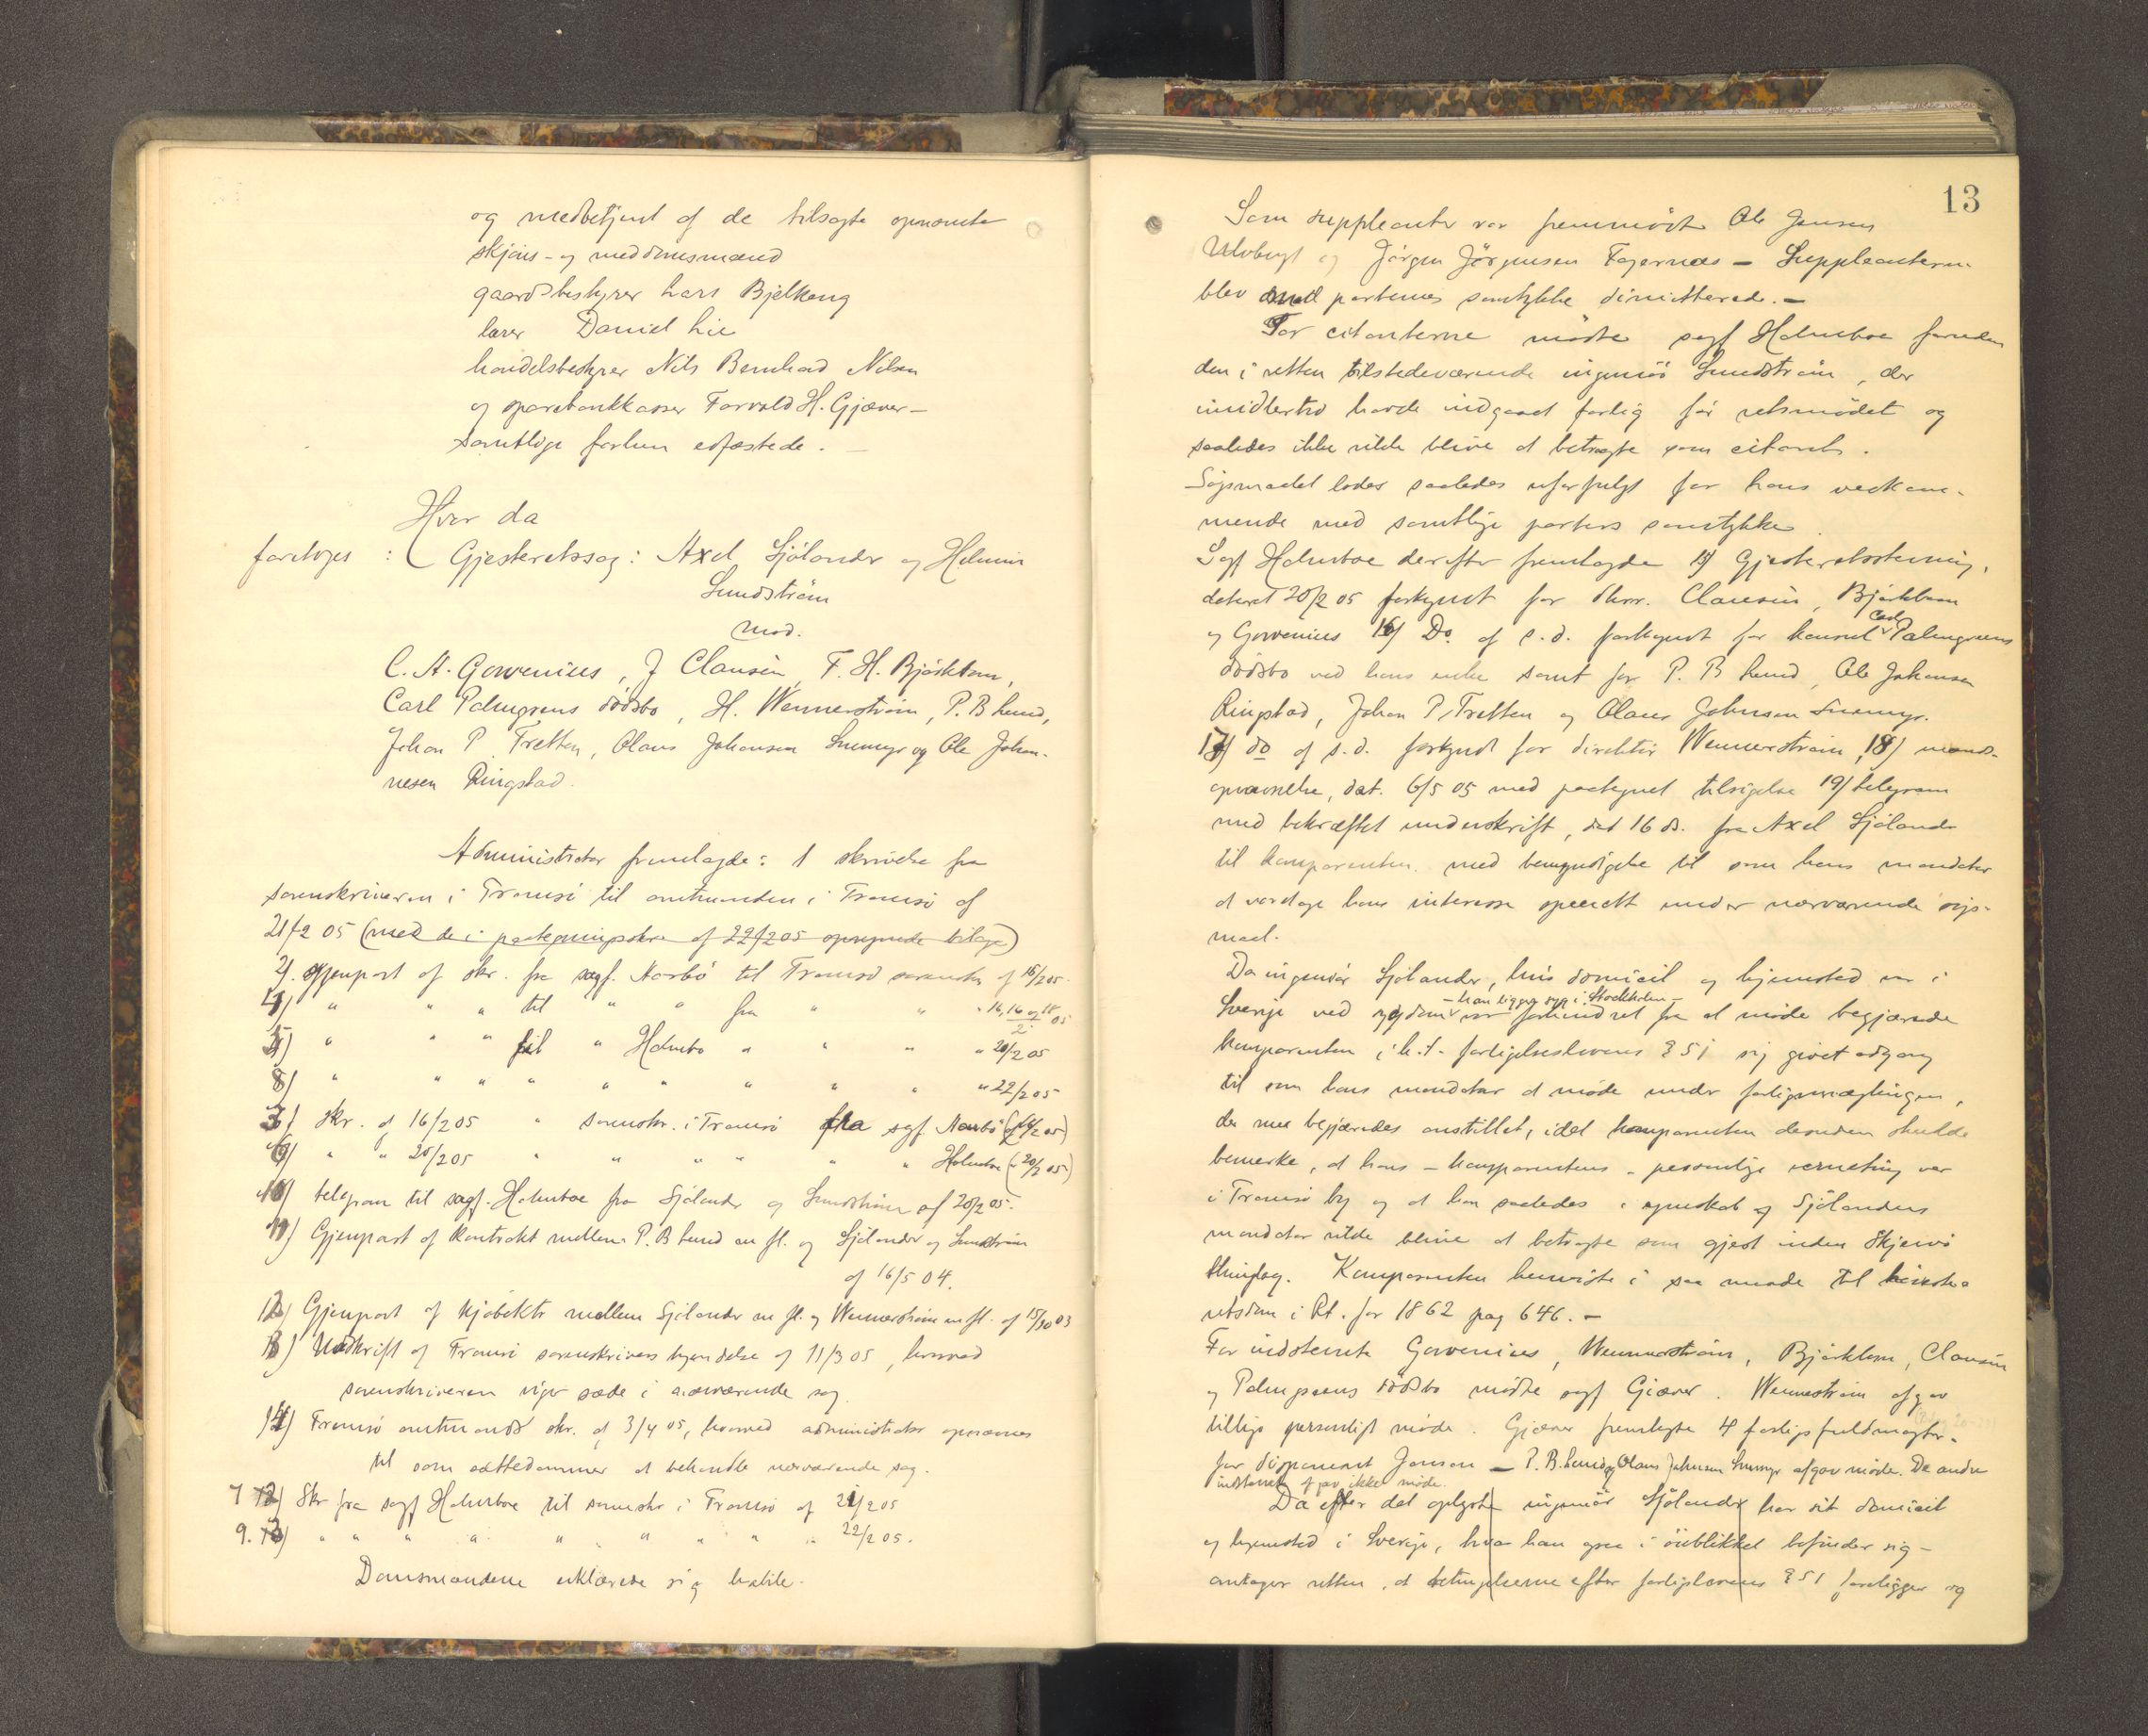 og medbetjent af de tilsagte opnævnte
skjøns- og meddomsmænd
gaardsbestyrer Lars Bjelkeng
lærer Daniel Lie
handelsbestyrer Nils Bernhard Nilsen
og sparebankkasser Torvald H. Gjæver –
samtlige forhen edfæstede. –
Hvor da
foretoges : Gjesteretssag: Axel Sjölander og Helmin
Sundström
mod.
C. A. Gowenius, J Clausén, F. H. Björkbom,
Carl Palmgrens dödsbo, H. Wennerström, P. B Lund,
Johan P. Tretten, Olaus Johansen Snemyr og Ole Johan-
nesen Ringstad.
Administrator fremlagde: 1 skrivelse fra
sorenskriveren i Tromsö til amtmanden i Tromsö af
21/2 05 (med de i paategningsskr. af 22/2 05 opregnede bilage)
2/. Gjenpart af skr. fra sagf. Norbö til Tromsö sorenskr. af 16/2 05.
4/) " " " til " " fra " " " 14, 16 og 18/2 05
5) " " " til " Holmbo " " " " 20/2 05
8) " " " " " " " " " " 22/2 05
3/ skr. af 16/2 05 " sorenskr. i Tromsö fra sagf Norbö (af 16/2 05)
6/ " " 20/2 05 " " " " " " Holmboe (" 20/2 05)
10/ telegram til sagf. Holmboe fra Sjölander og Sundström af 20/2 05.
11) Gjenpart af kontrakt mellem P. B Lund m fl. og Sjölander og Sundström
af 16/5 04.
12) Gjenpart af kjöbektr mellem Sjölander m fl. og Wennerström m fl. af 15/10 03
13) Udskrift af Tromsö sorenskrivers kjendelse af 11/3 05, hvorved
sorenskriveren viger sæde i nærværende sag
14) Tromsö amtmands skr. af 3/4 05, hvorved administrator opnævnes
til som sættedommer at behandle nærværende sag.
7 12) Skr fra sagf Holmboe til sorenskr i Tromsö af 21/2 05
9. 13) " " " " " " " " " 22/2 05.
Domsmændene erklærede sig habile.
13
Som suppleanter var fremmödt Ole Jensen
Ulvbugt og Jörgen Jörgensen Fagernæs – Suppleanterne
blev med parternes samtykke dimitterede. –
For citanterne mödte sagf Holmboe foruden
den i retten tilstedeværende ingeniör Sundström, der
imidlertid havde indgaaet forlig för retsmödet og
saaledes ikke vilde blive at betragte som citant.
Sögsmaalet lodes saaledes uforfulgt for hans vedkom-
mende med samtlige parters samtykke.
Sagf Holmboe derefter fremlagde 15/ Gjesteretsstevning,
dateret 20/2 05 forkyndt for dhrr. Clausén, Björkbom
og Gowenius 16/ Do. af s. d. forkyndt for konsul Carl Palmgrens
dödsbo ved hans enke samt for P. B Lund, Ole Johansen
Ringstad, Johan P. Tretten og Olaus Johnsen Snemyr.
17/ do af s. d. forkyndt for direktör Wennerström, 18/ mands-
opnævnelse, dat. 6/5 05 med paategnet tilsigelse 19/ telegram
med bekræftet underskrift, dat 16 ds. fra Axel Sjölander
til komparenten med bemyndigelse til som hans mandatar
at varetage hans interesse specielt under nærværende sögs-
maal.
Da ingeniör Sjölander, hvis domicil og hjemsted er i
Sverige ved sygdom – han ligger syg i Stockholm – var forhindret fra at möde begjærede
komparenten i h. t. forligelseslovens § 51 sig givet adgang
til som hans mandatar at möde under forligsmæglingen,
der nu begjæredes anstillet, idet komparenten desuden skulde
bemerke, at hans – komparentens – personlige verneting var
i Tromsö by og at han saaledes i egenskab af Sjölanders
mandatar vilde blive at betragte som gjest inden Skjervö
thinglag. Komparenten henviste i saa maade til höieste-
retsdom i Rt. for 1862 pag 646. –
For indstevnte Gowenius, Wennerström, Björkbom, Clausén
og Palmgrens dödsbo mödte sagf Gjæver. Wennerström afgav
tillige personligt möde. Gjæver fremlagte 4 forligsfuldmagter.
for disponent Janson – P. B. Lund og Olaus Johnsen Snemyr afgav möde. De andre
indstevnte afgav ikke möde.
Da efter det oplyste ingeniör Sjölander har sit domicil
og hjemsted i Sverige, hvor han ogsaa i öieblikket befinder sig –
antager retten, at betingelserne efter forligslovens § 51 foreligger og